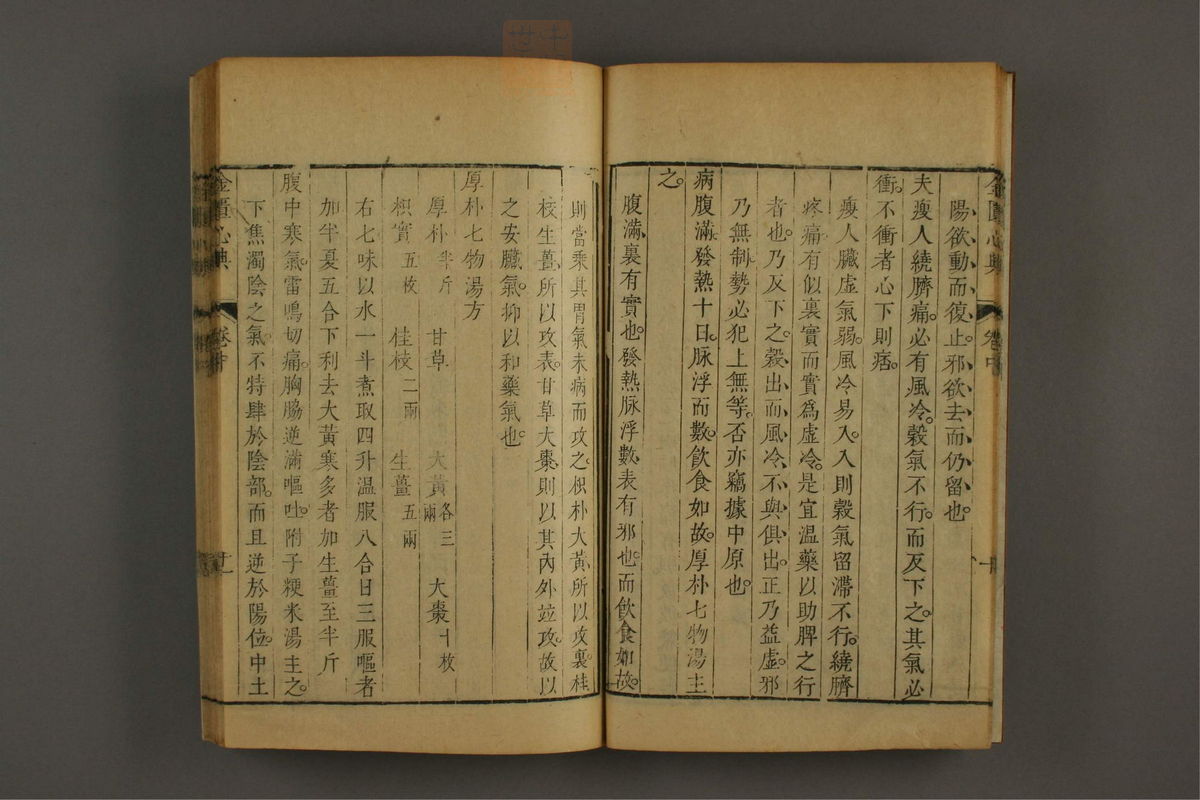 金匱心典 卷中
陽欲動而復止。邪欲去而仍留也。
夫瘦人繞臍痛。必有風冷。穀氣不行。而反下之。其氣必
衝。不衝者心下則痞。
瘦人臟虛氣弱。風冷易入。入則穀氣留滯不行。繞臍
疼痛。有似裏實而實爲虛冷。是宜溫藥以助脾之行
者也。乃反下之。穀出而風冷不與俱出。正乃益虛。邪
乃無制。勢必犯上無等。否亦竊據中原也。
病腹滿。發熱十日。脉浮而數。飲食如故。厚朴七物湯主
之。
腹滿。裏有實也。發熱脉浮數。表有邪也。而飲食如故。
則當乘其胃氣未病而攻之。枳朴大黃。所以攻裏。桂
枝生薑。所以攻表。甘草大棗。則以其內外並攻。故以
之安臟氣。抑以和藥氣也。
厚朴七物湯方
厚朴半斤 甘草 大黃各三兩 大棗十枚
枳實五枚 桂枝二兩 生薑五兩
右七味以水一斗煮取四升溫服八合日三服嘔者
加半夏五合下利去大黃寒多者加生薑至半斤
腹中寒氣。雷鳴切痛。胸脇逆滿嘔吐。附子粳米湯主之。
下焦濁陰之氣。不特肆於陰部。而且逆於陽位。中土
金匱心典 卷中 十一